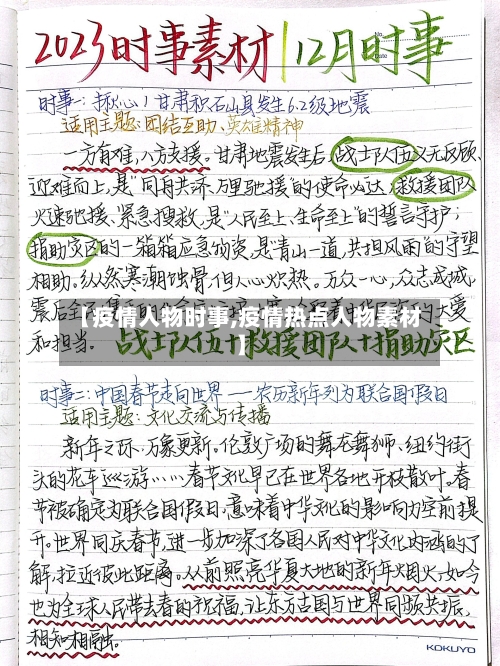 2023时事素材|12月时事
No.
Date
时事一:揪心!甘肃积石山县发生6.2级地震
适用主题:团结互助、英雄精神
一方有难,八方支援。甘肃地震发生后,战士队伍义无反顾、
迎难而上,是“同舟共济、万里驰援”的使命必达;救援团队
火速驰援、紧急搜救,是“人民至上、生命至上”的誓言守护;
捐助灾区的一箱箱应急物资,是“青山一道,共担风雨”的守望
相助。纵然寒潮蚀骨,但人心炽热。万众一心,众志成城,
震后
大爱
和担当。
战士队伍+救援团队+捐助灾区
【疫情人物时事,疫情热点人物素材
】
时事二:中国春节走向世界——农历新年列为联合国假日
适用主题:文化交流与传播
新年之际,万象更新。伦敦广场的舞龙舞狮、纽约街
头的花车巡游……春节文化早已在世界各地开枝散叶。春
节被确定为联合国假日,意味着中华文化的影响力空前提
升。世界同庆春节,进一步加深了各国人民对中华文化内涵的了
解,拉近彼此距离。从前照亮华夏大地的新年烟火,如今
也为全球人民带去春的祝福,让东方古国与世界同频共振,
相知相融。
KOKUYO